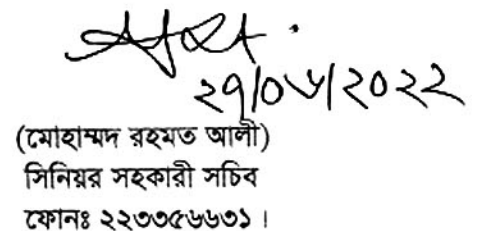 ২৭/০৬/২০২২
(মোহাম্মদ রহমত আলী)
সিনিয়র সহকারী সচিব
ফোনঃ ২২৩৩৫৬৬৩১ ।